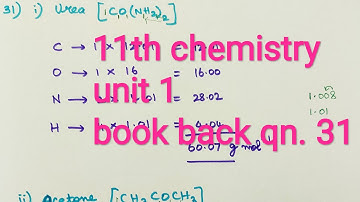 31) i) Urea [CO(NH2)2]
C → 1 ×
O → 1 × 16 = 16.00
N → = 28.02
H → 4 × 1.01 = 4.04
60.07 g mol
1.008
1.01
11th chemistry
unit 1
book back qn. 31
ii) Acetone [CH3COCH3]